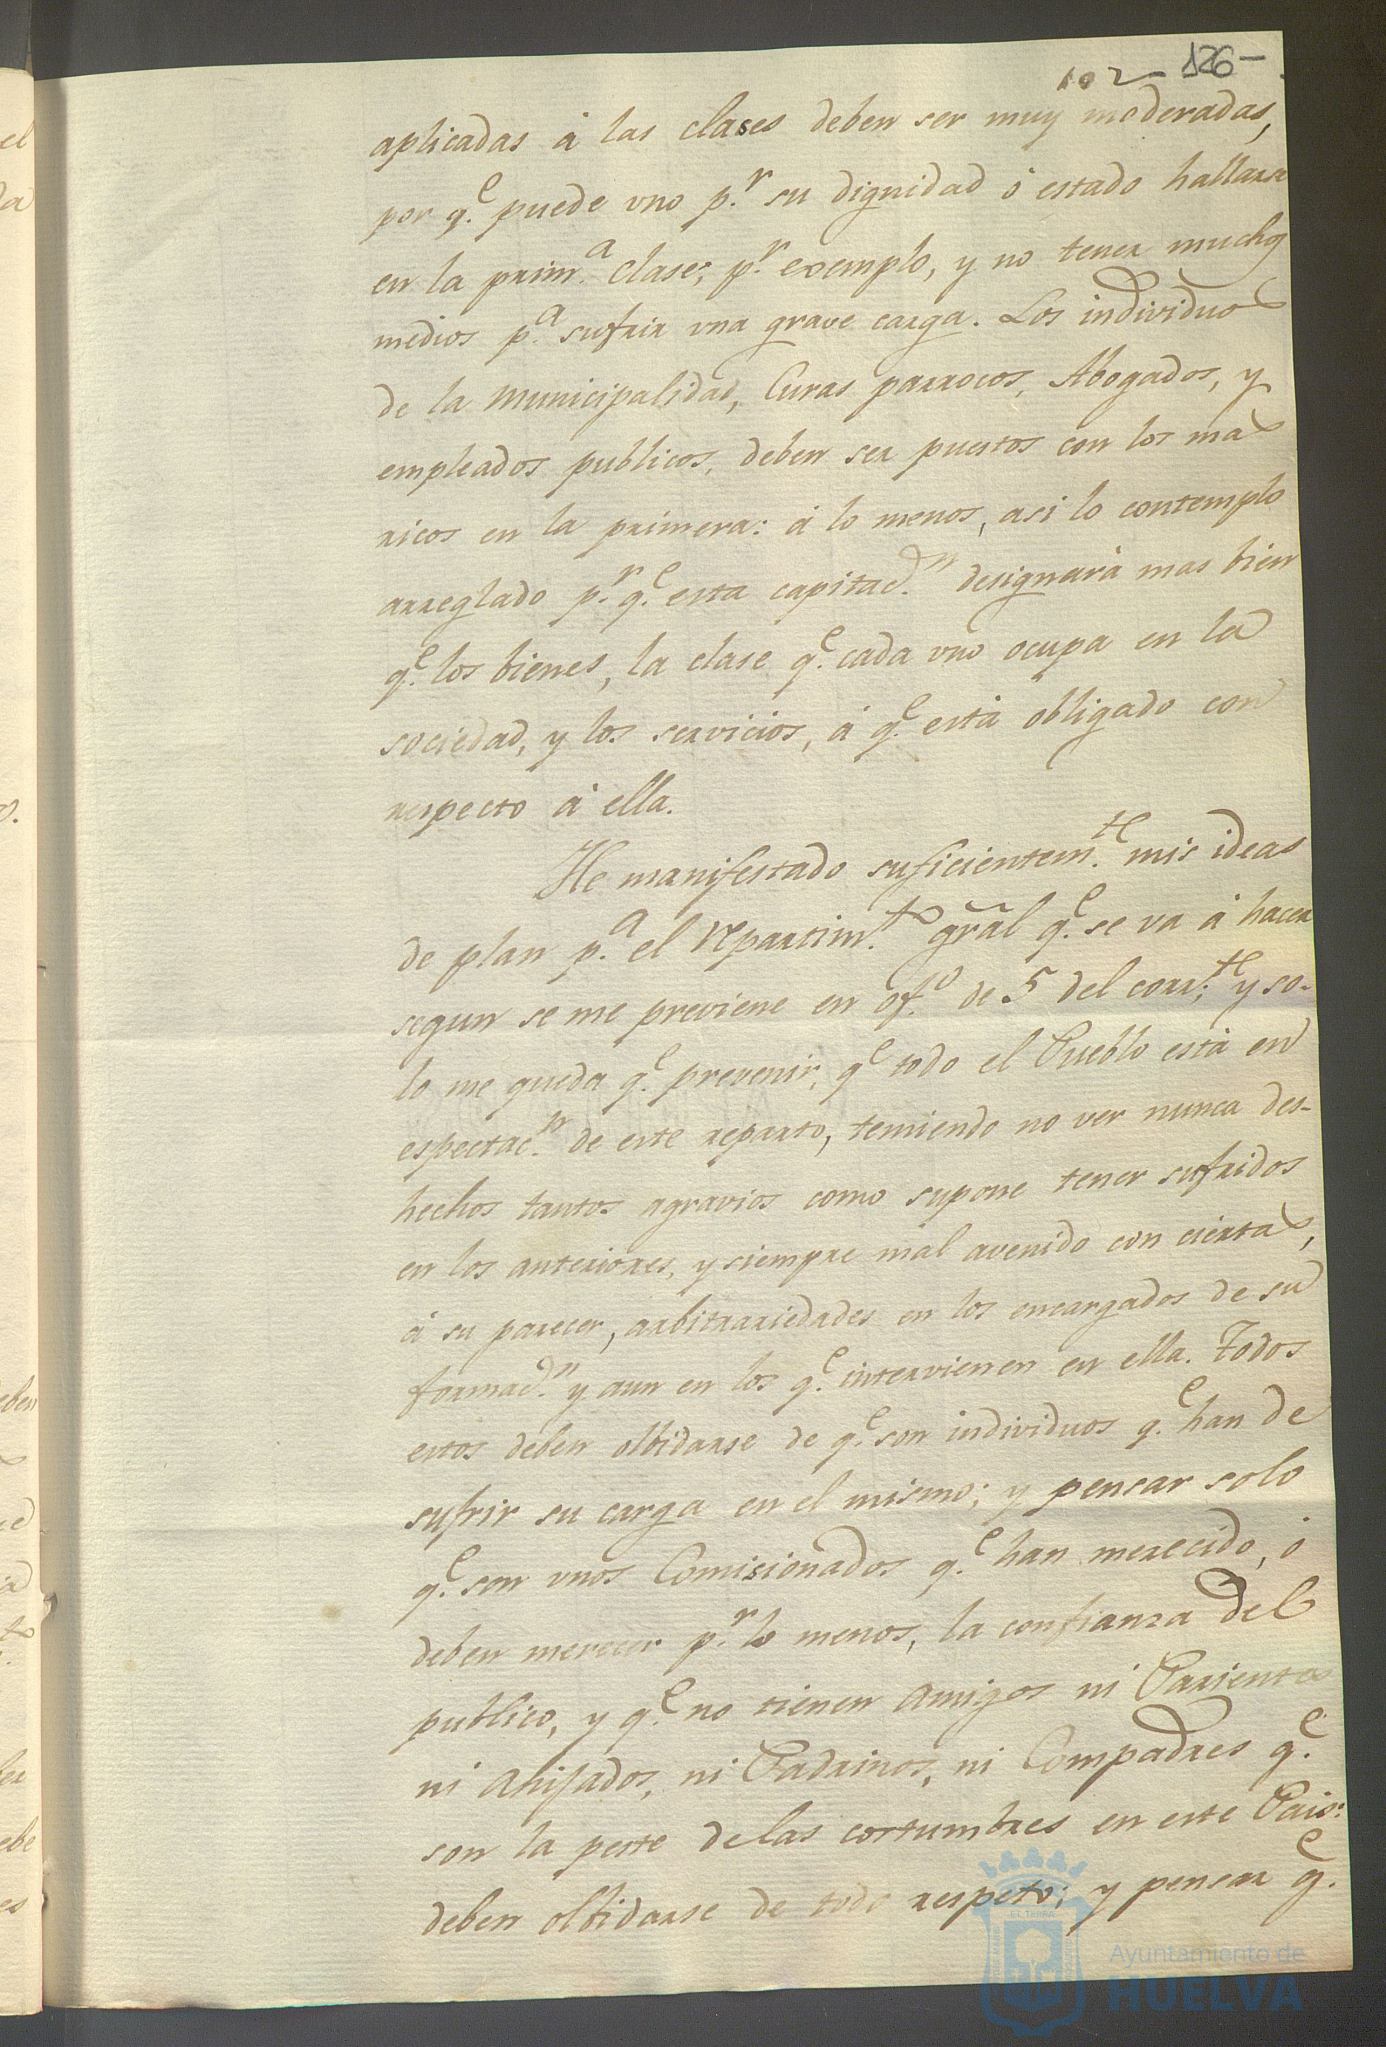 102 126-
aplicadas á las clases deben ser muy moderadas,
por q.e puede uno p.r su dignidad ó estado hallarse
en la prim.a clase, p.r exemplo, y no tener muchos
medios p.a sufrir una grave carga. Los individuos
de la Municipalidad, Curas parrocos, Abogados, y
empleados publicos, deben ser puestos con los mas
ricos en la primera: á lo menos, asi lo contemplo
arreglado p.r q.e esta capitac.n designará mas bien
q.e los bienes, la clase q.e cada uno ocupa en la
sociedad, y los servicios, á q.e está obligado con
respecto á ella.
He manifestado suficientem.te mis ideas
de plan p.a el repartim.to gral q.e se va á hacer
segun se me previene en of.o de 5 del corr.te; y so-
lo me queda q.e prevenir, q.e todo el Pueblo está en
espectac.n de este reparto, temiendo no ver nunca des-
hechos tantos agravios como supone tener sufridos
en los anteriores, y siempre mal avenido con ciertas,
á su parecer, arbitrariedades en los encargados de su
formac.n y aun en los q.e intervienen en ella. Todos
estos deben olbidarse de q.e son individuos q.e han de
sufrir su carga en el mismo; y pensar solo
q.e son unos Comisionados q.e han merecido, ó
deben merecer p.r lo menos, la confianza del
publico, y q.e no tienen Amigos ni Parientes
ni Ahijados, ni Padrinos, ni Compadres q.e
son la peste de las costumbres en este Pais:
deben olbidarse de todo respeto; y pensar q.e
Ayuntamiento de
HUELVA